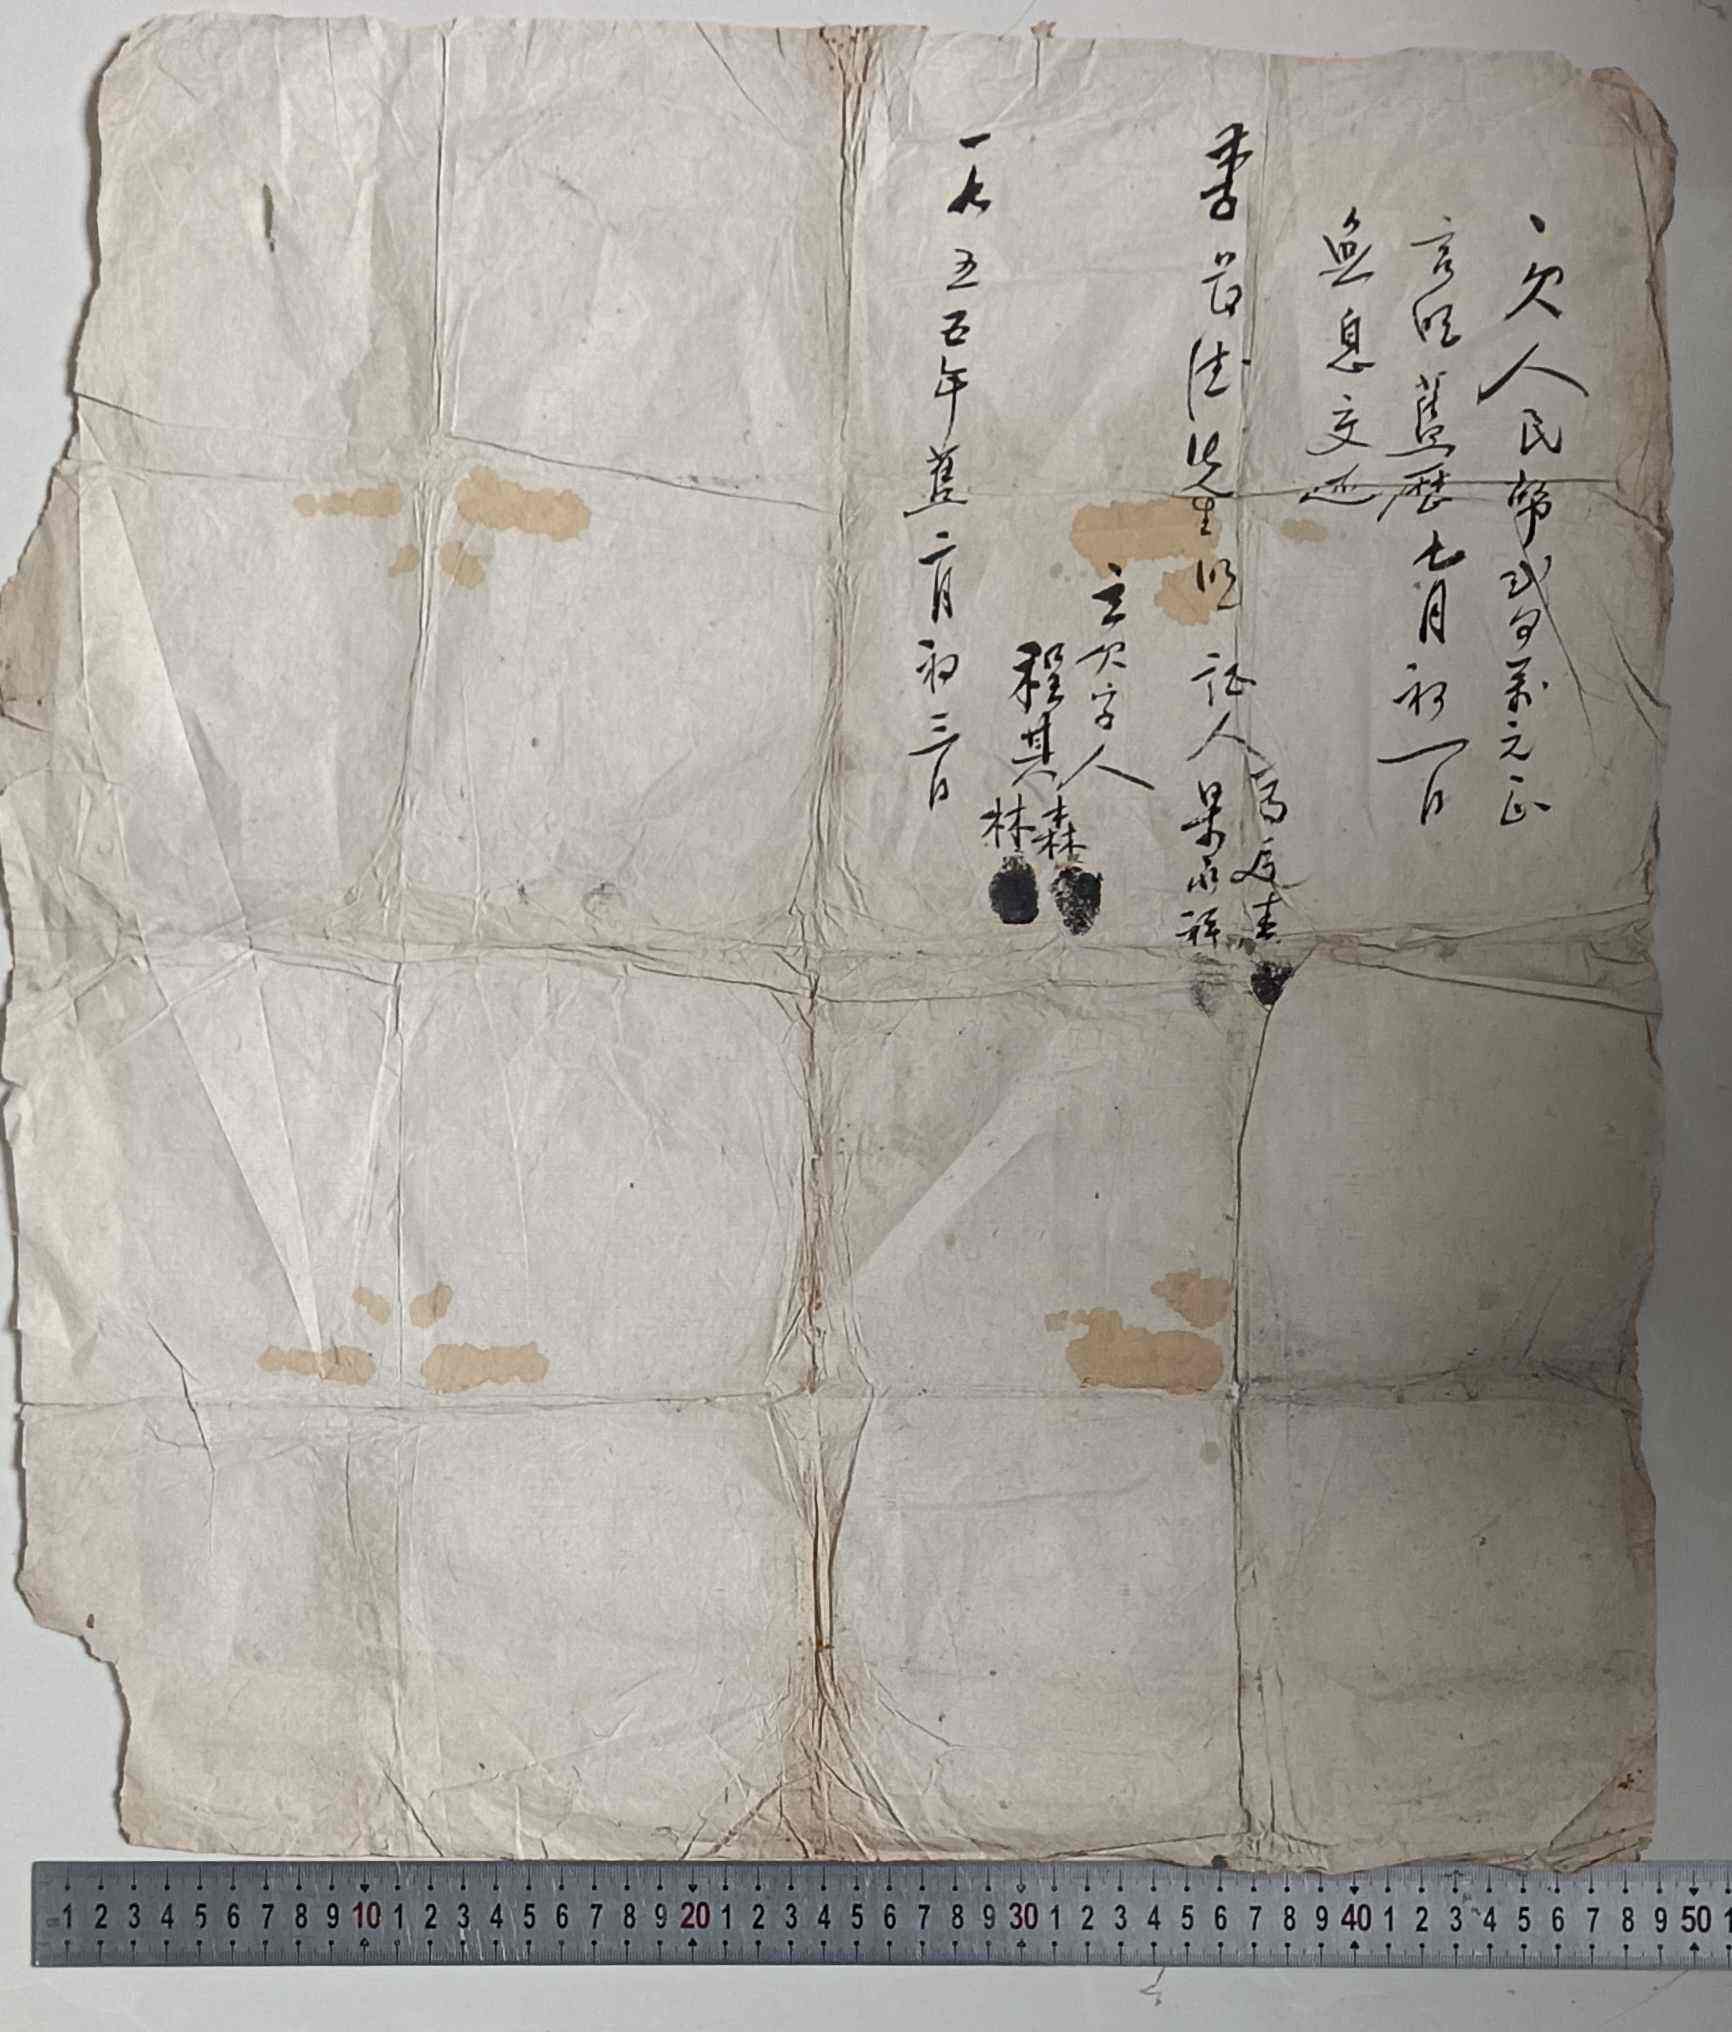 欠人民幣弍百萬元正
言明舊歷七月初一日
無息交还
李 德先生明 证人
馮 
景永祥
立欠字人
程其
森
林
一九五五年舊二月初三日
1 2 3 4 5 6 7 8 9 10 1 2 3 4 5 6 7 8 9 20 1 2 3 4 5 6 7 8 9 30 1 2 3 4 5 6 7 8 9 40 1 2 3 4 5 6 7 8 9 50 1